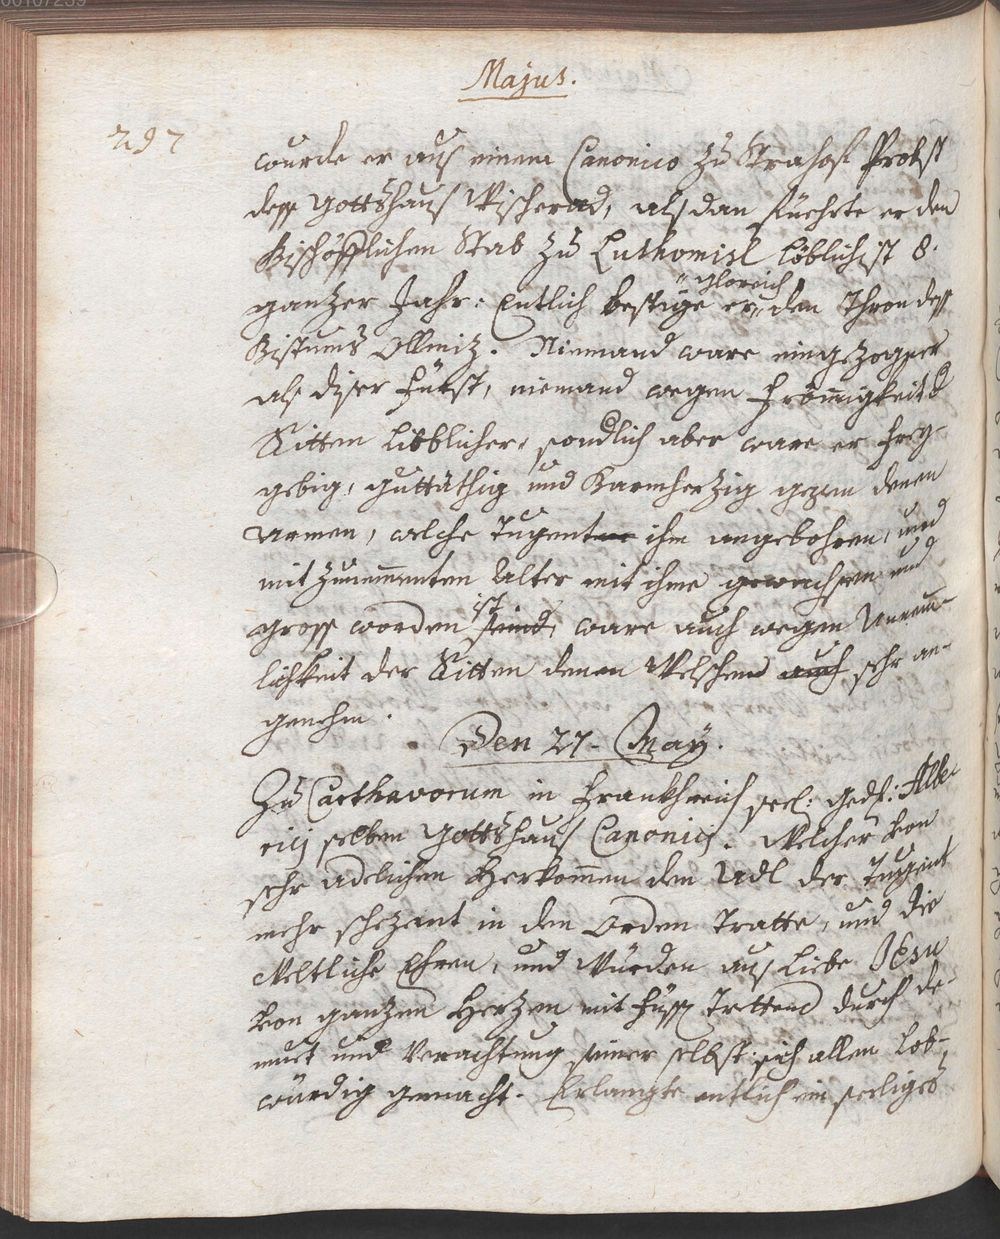 00107239
Majus.
297
wurde er aus einem Canonico zu Strahoff Probst
dess Gottshaus Wischerad, alsdan fuehrte er den
Bischöfflichen Stab zu Luthomisl löblichist 8.
gantzer Jahr. Entlich bestige er glorreich den Thron dess
Bistums Ollmiz. Niemand ware eingezogner
als diser Fürst, niemand wegen Frömigkeit d
Sitten liebblicher, sondlich aber ware er frey-
gebig, guttäthig und barmherzig gegen denen
armen, welche Tugenten ihm angebohren, und
mit zunemmenten Alter mit ihme gewachsen und
gross worden ist seind, ware auch wegen
lichkeit der Sitten denen Welschen auch sehr an-
genehm.
Den 27. May.
Zu Carthavorum in Frankhreich seel: gedf: Albe
ricij selben Gottshaus Canonicij. Welcher von
sehr adelichen Herkomen den Adl der Tugent
mehr schezent in den Orden Tratte, und die
Weltliche Ehren, und Würden aus Liebe Jesu
von ganzen Herzen mit Füss Trettend durch de-
mut und Verachtung seiner selbst sich allen Lob-
würdig gemacht. Erlangte entlich ein seeliges